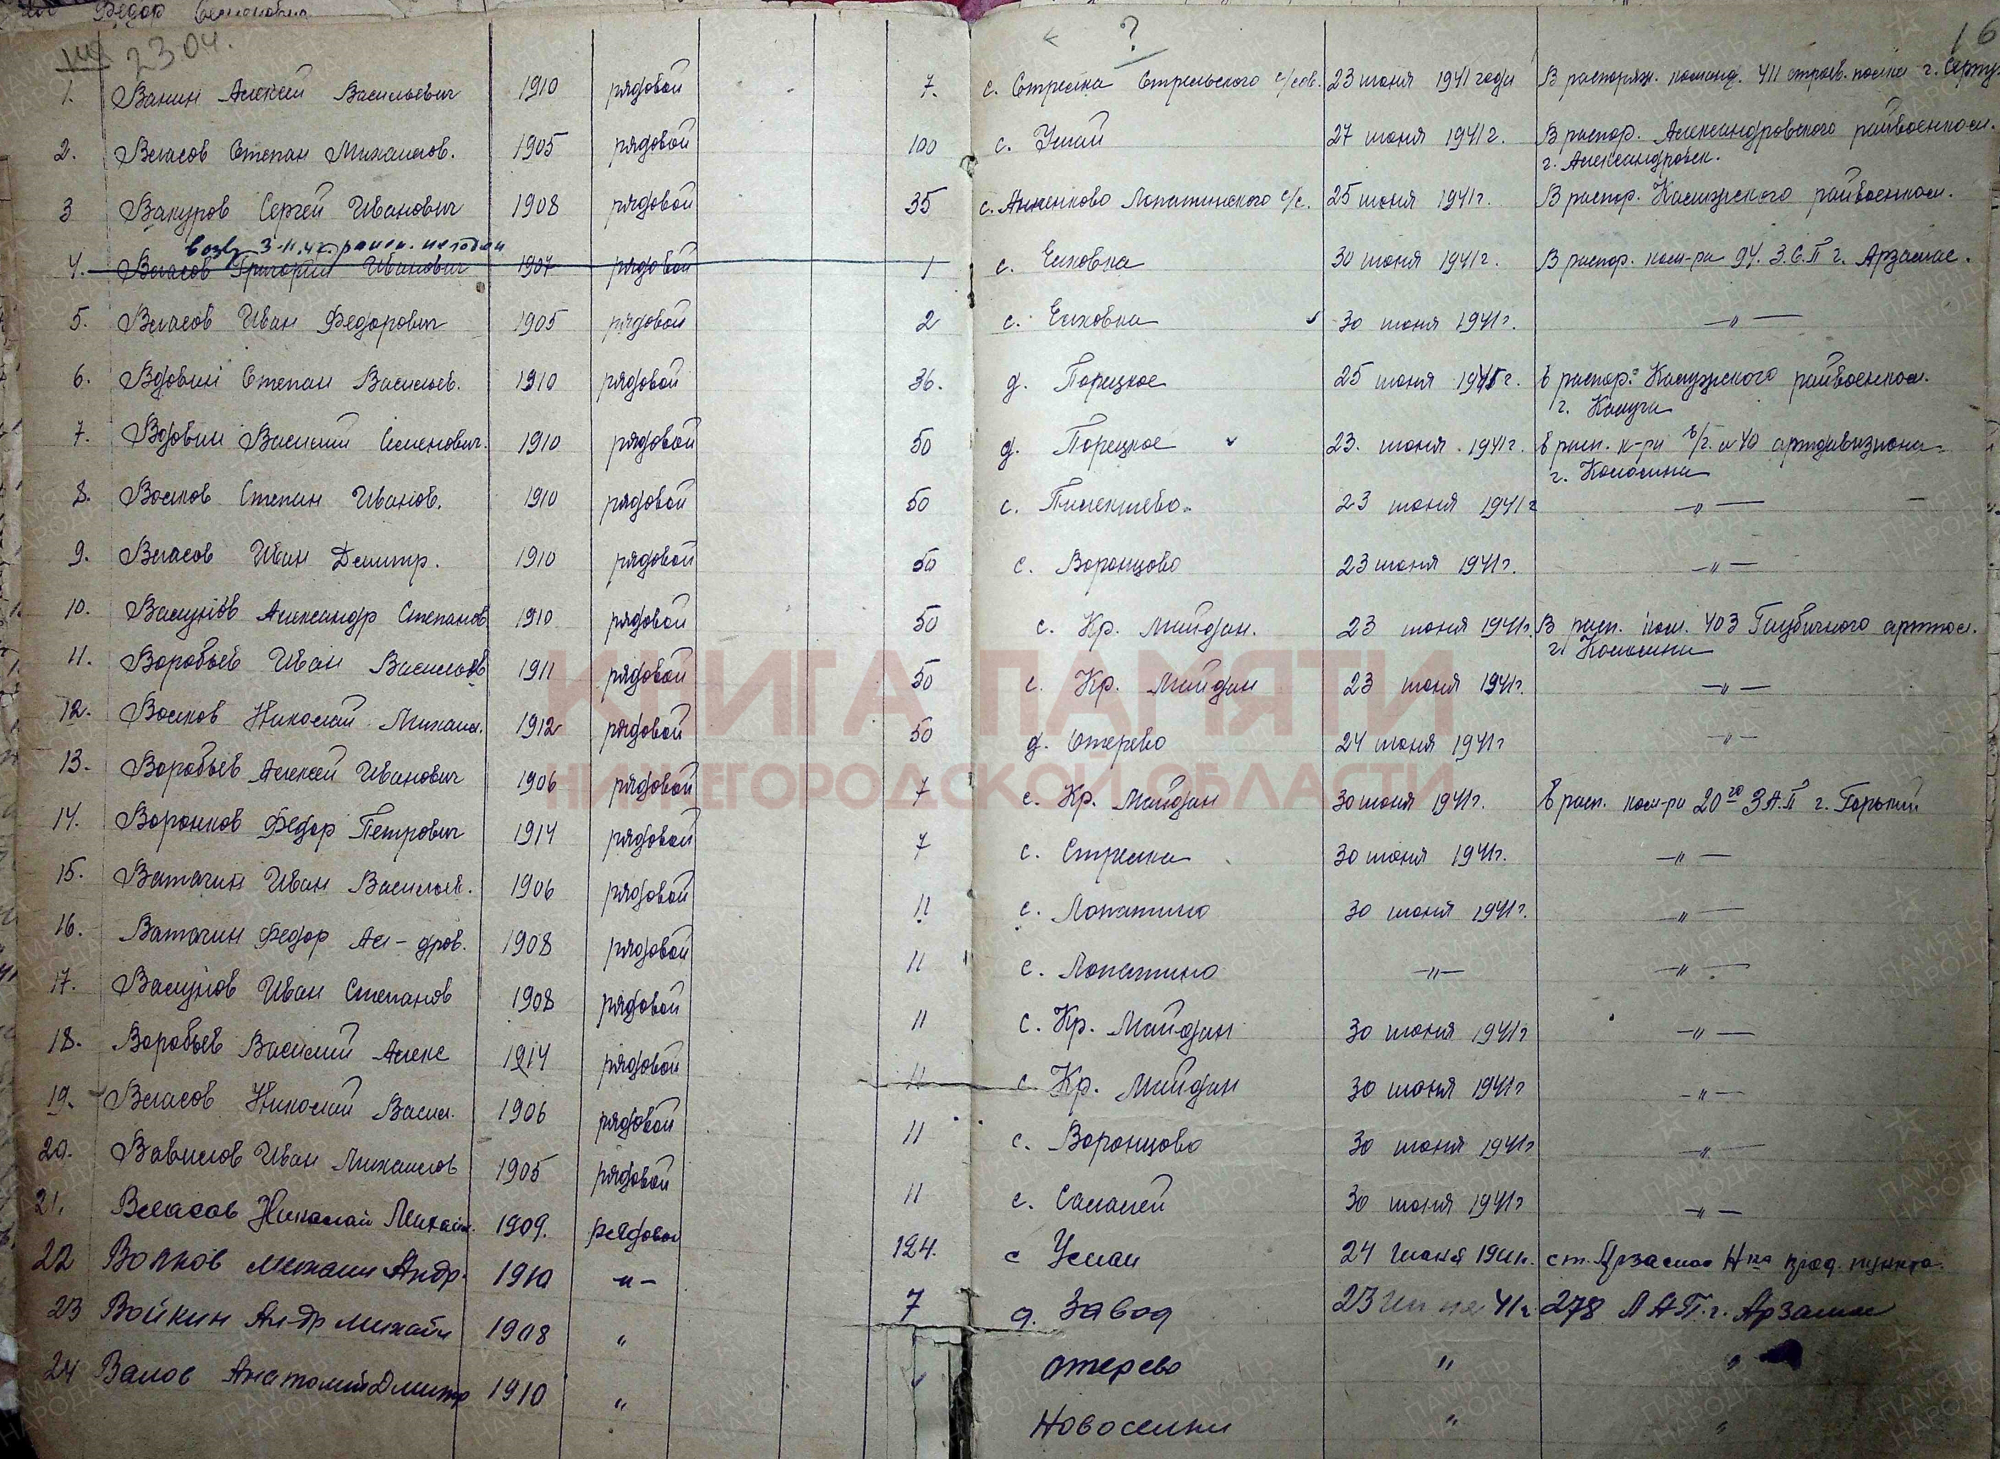 Федор Семенович
23.04. ? 16
1. Ванин Алексей Васильевич 1910 рядовой 7. с. Стрелка Стрельского с/сов. 23 июня 1941 года В распоряж. команд. 411 строев. полка г.
2. Власов Степан Михайлов. 1905 рядовой 100 с. Усай 27 июня 1941 г. В распор. Александровского райвоенком.
г. Александровск.
3 Вакуров Сергей Иванович 1908 рядовой 35 с. Анненково Лопатинского с/с. 25 июня 1941 г. В распор. Калужского райвоенком.
возв 3-11.41г.
4. Власов Григорий Иванович 1907 рядовой 1 с. Елховка 30 июня 1941 г. В распор. ком-ра 94. З.С.П г. Арзамас.
5. Власов Иван Федорович 1905 рядовой 2 с. Елховка 30 июня 1941 г. —"—
6. Вдовин Степан Васильев. 1910 рядовой 36. д. Порецкое 25 июня 1941 г. в распор. Калужского райвоенком.
г. Калуга
7. Вдовин Василий Семенович. 1910 рядовой 50 д. Порецкое 23. июня 1941 г. в расп. к-ра в/г. 40 артдивизиона
г. Коломна
8. Волков Степан Иванов. 1910 рядовой 50 с. Пилекшево. 23 июня 1941 г —"— —
9. Власов Иван Дмитр. 1910 рядовой 50 с. Воронцово 23 июня 1941 г. —"—
10. Васунов Александр Степанов 1910 рядовой 50 с. Кр. Майдан. 23 июня 1941 г. В расп. ком. 403 Гаубичного артпол.
г. Коломна
11. Воробьев Иван Васильев 1911 рядовой 50 с. Кр. Майдан 23 июня 1941 г. —"—
12. Волков Николай Михаил. 1912 рядовой 50 д. Отерево 24 июня 1941 г —"—
13. Воробьев Алексей Иванович 1906 рядовой 7 с. Кр. Майдан 30 июня 1941 г. в расп. ком-ра 20го З.А.П г. Горький
14. Воронков Федор Петрович 1914 рядовой 7 с. Стрелка 30 июня 1941 г. —"—
15. Ватагин Иван Васильев. 1906 рядовой 11 с. Лопатино 30 июня 1941 г. —"—
16. Ватагин Федор Ал-дров. 1908 рядовой 11 с. Лопатино —"— —"—
17. Васунов Иван Степанов 1908 рядовой 11 с. Кр. Майдан 30 июня 1941 г —"—
18. Воробьев Василий Алекс 1914 рядовой 11 с. Кр. Майдан 30 июня 1941 г —"—
19. Власов Николай Васил. 1906 рядовой 11 с. Воронцово 30 июня 1941 г —"—
20. Вавилов Иван Михайлов 1905 рядовой 11 с. Саланей 30 июня 1941 г —"—
21. Власов Николай Михайл. 1909. рядовой 124. с Усаи 24 июня 1941 г. ст. Арзамас Нка прод. пункта.
22 Волков Михаил Андр. 1910 "– 7 д. Завод 23 июня 41 г. 278 ЛАП. г. Арзамас
23 Войкин Ал-др Михайл 1908 " " Отерево " "
24 Валов Анатолий Дмитр 1910 " Новоселки " "
КНИГА ПАМЯТИ
НИЖЕГОРОДСКОЙ ОБЛАСТИ
ПАМЯТЬ НАРОДА